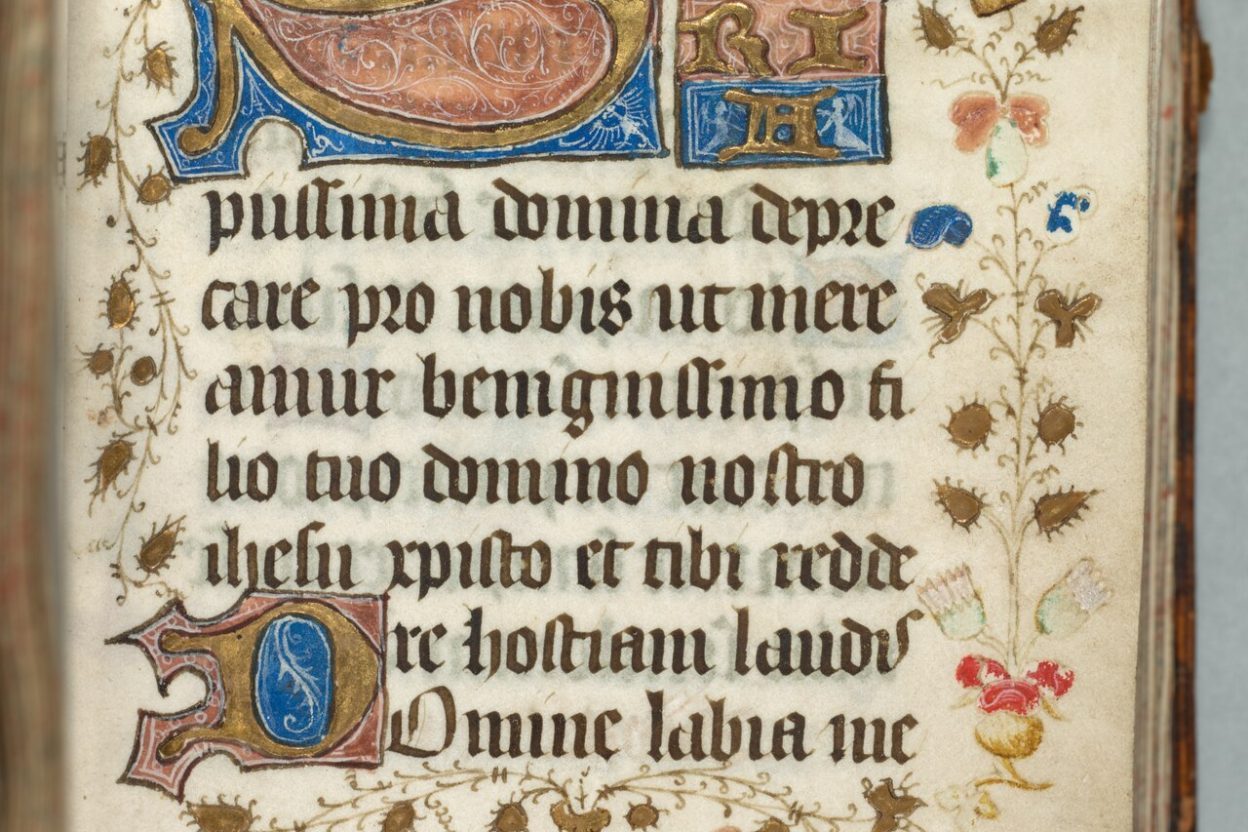 RI
A
piissima domina depre
care pro nobis ut mere
amur benignissimo fi
lio tuo domino nostro
ihesu xpisto et tibi redde
re hostiam laudis
Domine labia me